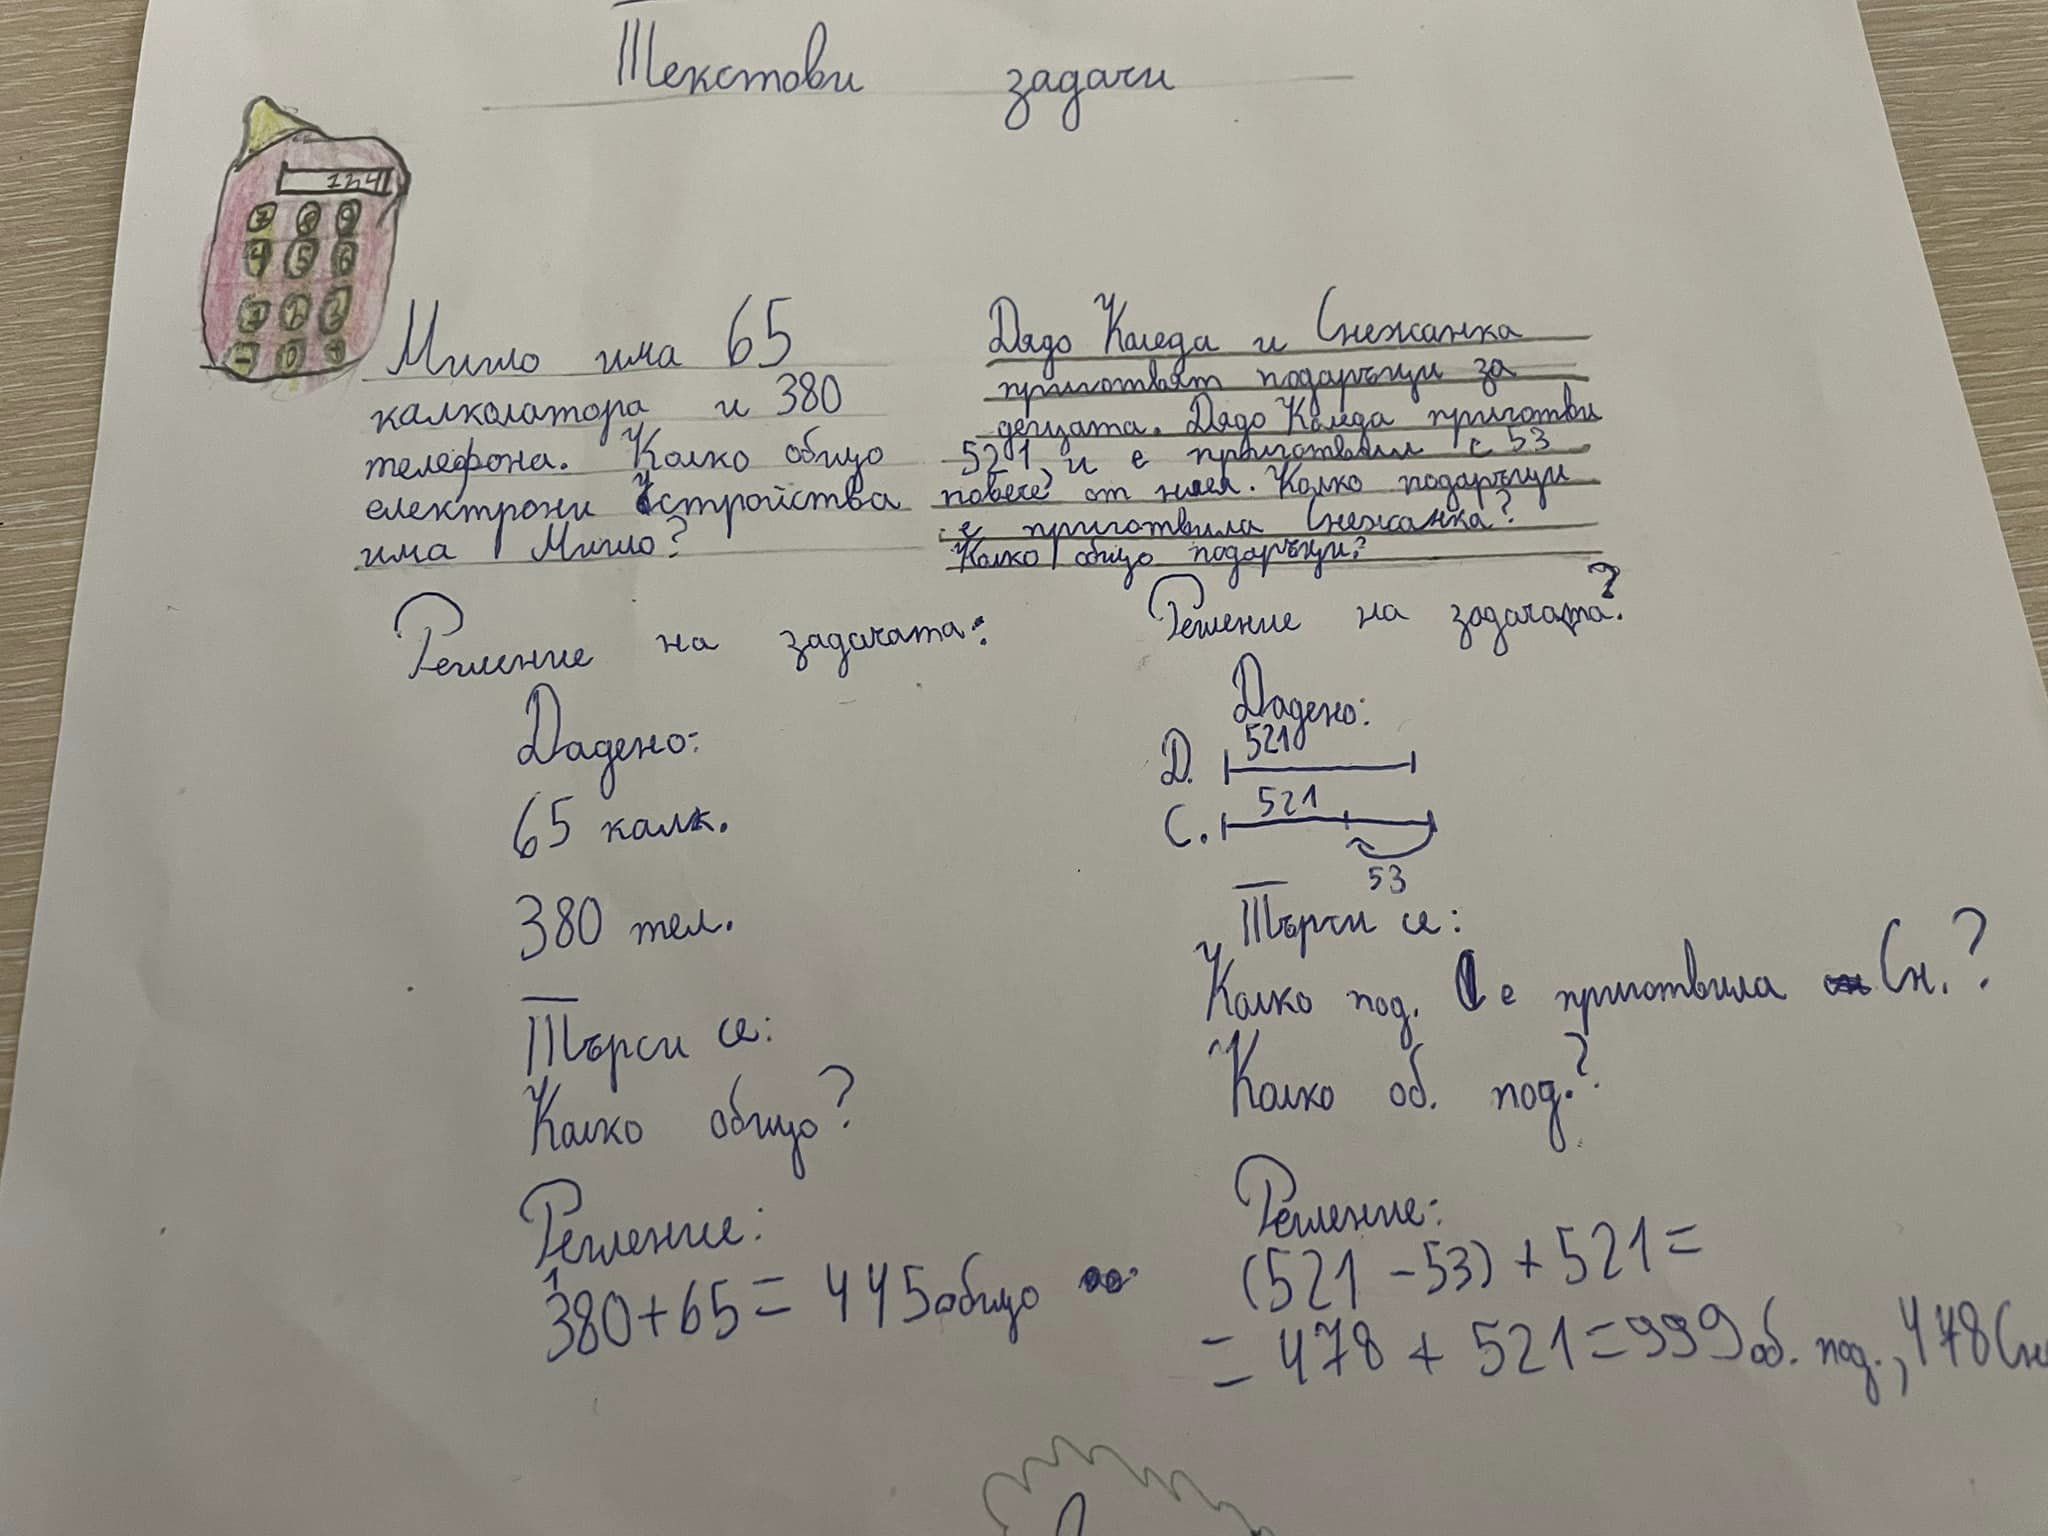 Текстови задачи
134
7 8 9
4 5 6
1 2 3
- 0 +
Мишо има 65
калколатора и 380
телефона. Колко общо
електрони устройства
има Мишо?
Решение на задачата:
Дадено:
65 калк.
380 тел.
Търси се:
Колко общо?
Решение:
1
380+65= 445 общо
Дядо Коледа и Снежанка
приготвят подаръци за
децата. Дядо Коледа приготви
521, и е приготвил с 53
повече от нея. Колко подаръци
е приготвила Снежанка?
Колко общо подаръци?
Решение на задачата?
Дадено:
Д. 521
С. 521
53
Търси се:
Колко под. е приготвила Сн.?
Колко об. под.?
Решение:
(521 - 53) + 521 =
= 478 + 521 = 999 об. под., 478 Сн